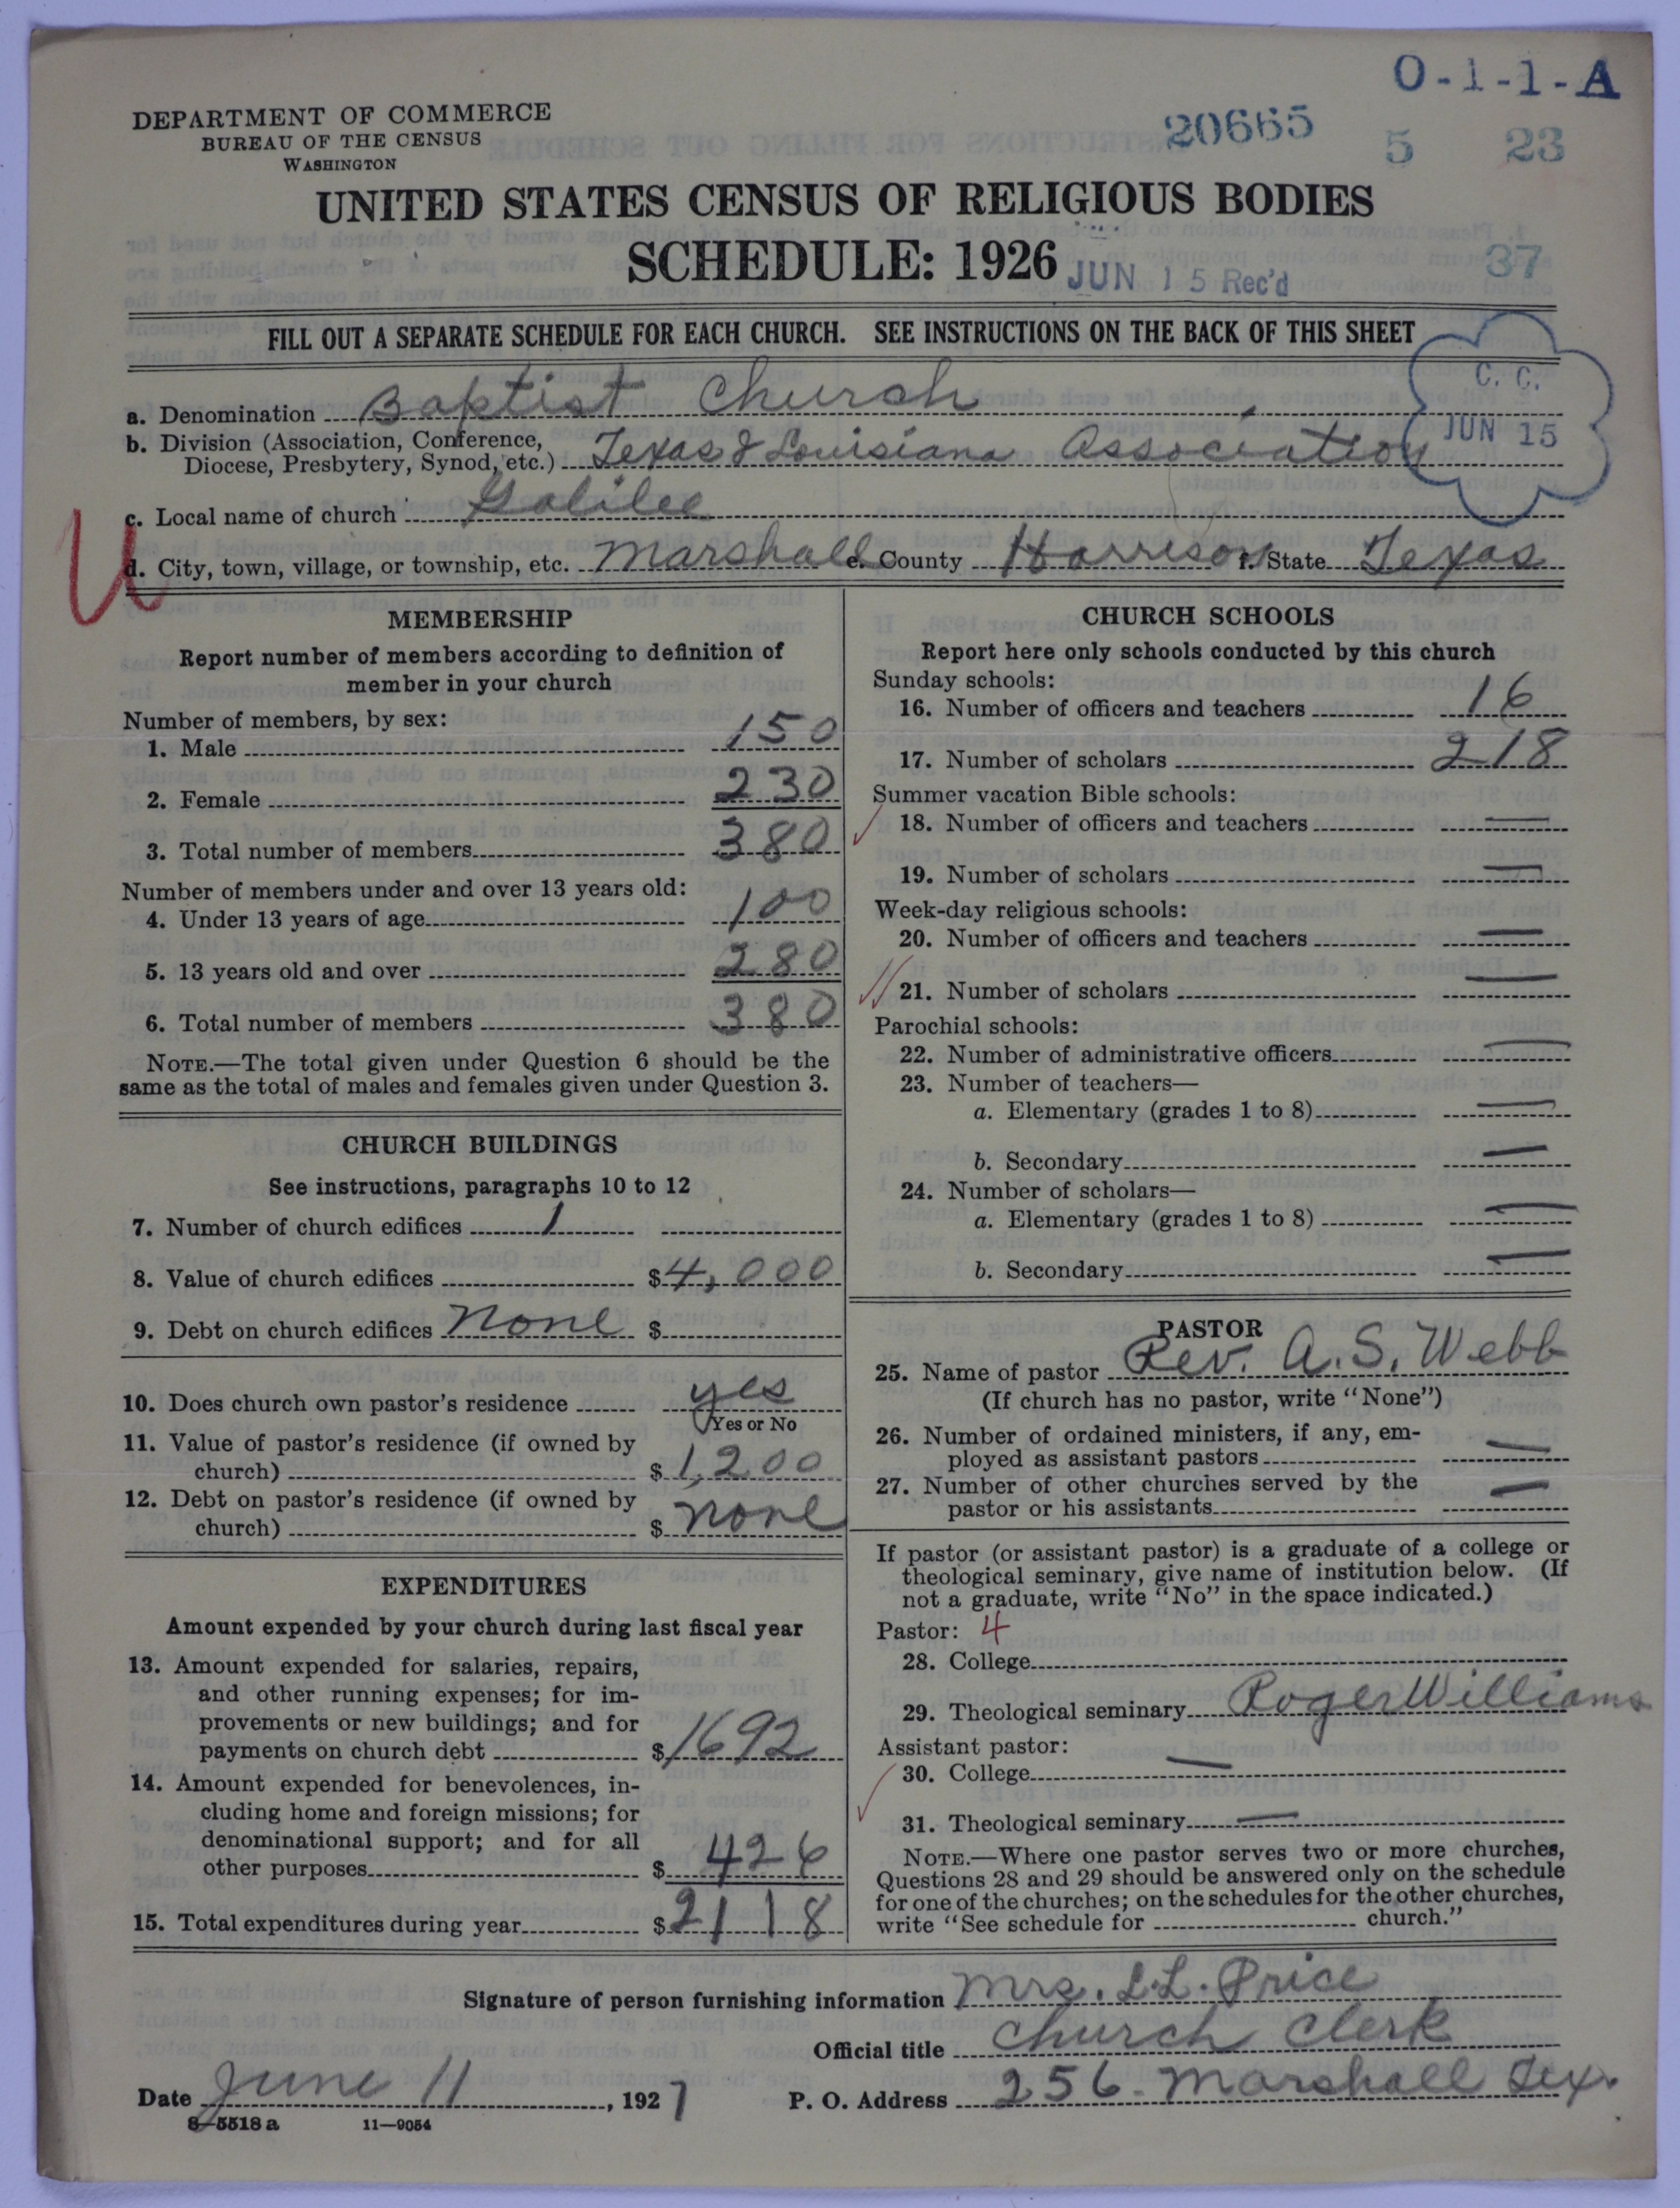 O-1-1-A
DEPARTMENT OF COMMERCE
BUREAU OF THE CENSUS
WASHINGTON
20665
5 23
UNITED STATES CENSUS OF RELIGIOUS BODIES
SCHEDULE: 1926
JUN 15 Rec'd
37
FILL OUT A SEPARATE SCHEDULE FOR EACH CHURCH. SEE INSTRUCTIONS ON THE BACK OF THIS SHEET
C. C.
JUN 15
a. Denomination Baptist Church
b. Division (Association, Conference,
Diocese, Presbytery, Synod, etc.) Texas & Louisiana Association
c. Local name of church Galilee
U
d. City, town, village, or township, etc. Marshall e. County Harrison f. State Texas
MEMBERSHIP
Report number of members according to definition of
member in your church
Number of members, by sex:
1. Male 150
2. Female 230
3. Total number of members 380
Number of members under and over 13 years old:
4. Under 13 years of age 100
5. 13 years old and over 280
6. Total number of members 380
NOTE.—The total given under Question 6 should be the
same as the total of males and females given under Question 3.
CHURCH BUILDINGS
See instructions, paragraphs 10 to 12
7. Number of church edifices 1
8. Value of church edifices $4,000
9. Debt on church edifices None $
10. Does church own pastor's residence yes
Yes or No
11. Value of pastor's residence (if owned by
church) $1,200
12. Debt on pastor's residence (if owned by
church) $ none
EXPENDITURES
Amount expended by your church during last fiscal year
13. Amount expended for salaries, repairs,
and other running expenses; for im-
provements or new buildings; and for
payments on church debt $1692
14. Amount expended for benevolences, in-
cluding home and foreign missions; for
denominational support; and for all
other purposes $426
15. Total expenditures during year $2118
CHURCH SCHOOLS
Report here only schools conducted by this church
Sunday schools:
16. Number of officers and teachers 16
17. Number of scholars 218
Summer vacation Bible schools:
18. Number of officers and teachers —
19. Number of scholars —
Week-day religious schools:
20. Number of officers and teachers —
21. Number of scholars —
Parochial schools:
22. Number of administrative officers —
23. Number of teachers—
a. Elementary (grades 1 to 8) —
b. Secondary —
24. Number of scholars—
a. Elementary (grades 1 to 8) —
b. Secondary —
PASTOR
25. Name of pastor Rev. A. S. Webb
(If church has no pastor, write "None")
26. Number of ordained ministers, if any, em-
ployed as assistant pastors —
27. Number of other churches served by the
pastor or his assistants —
If pastor (or assistant pastor) is a graduate of a college or
theological seminary, give name of institution below. (If
not a graduate, write "No" in the space indicated.)
Pastor: 4
28. College
29. Theological seminary Roger Williams
Assistant pastor:
30. College —
31. Theological seminary —
NOTE.—Where one pastor serves two or more churches,
Questions 28 and 29 should be answered only on the schedule
for one of the churches; on the schedules for the other churches,
write "See schedule for church."
Signature of person furnishing information Mrs. L. L. Price
Official title Church Clerk
Date June 11, 1927 P. O. Address 256 Marshall Tex.
8—5518 a 11—9054